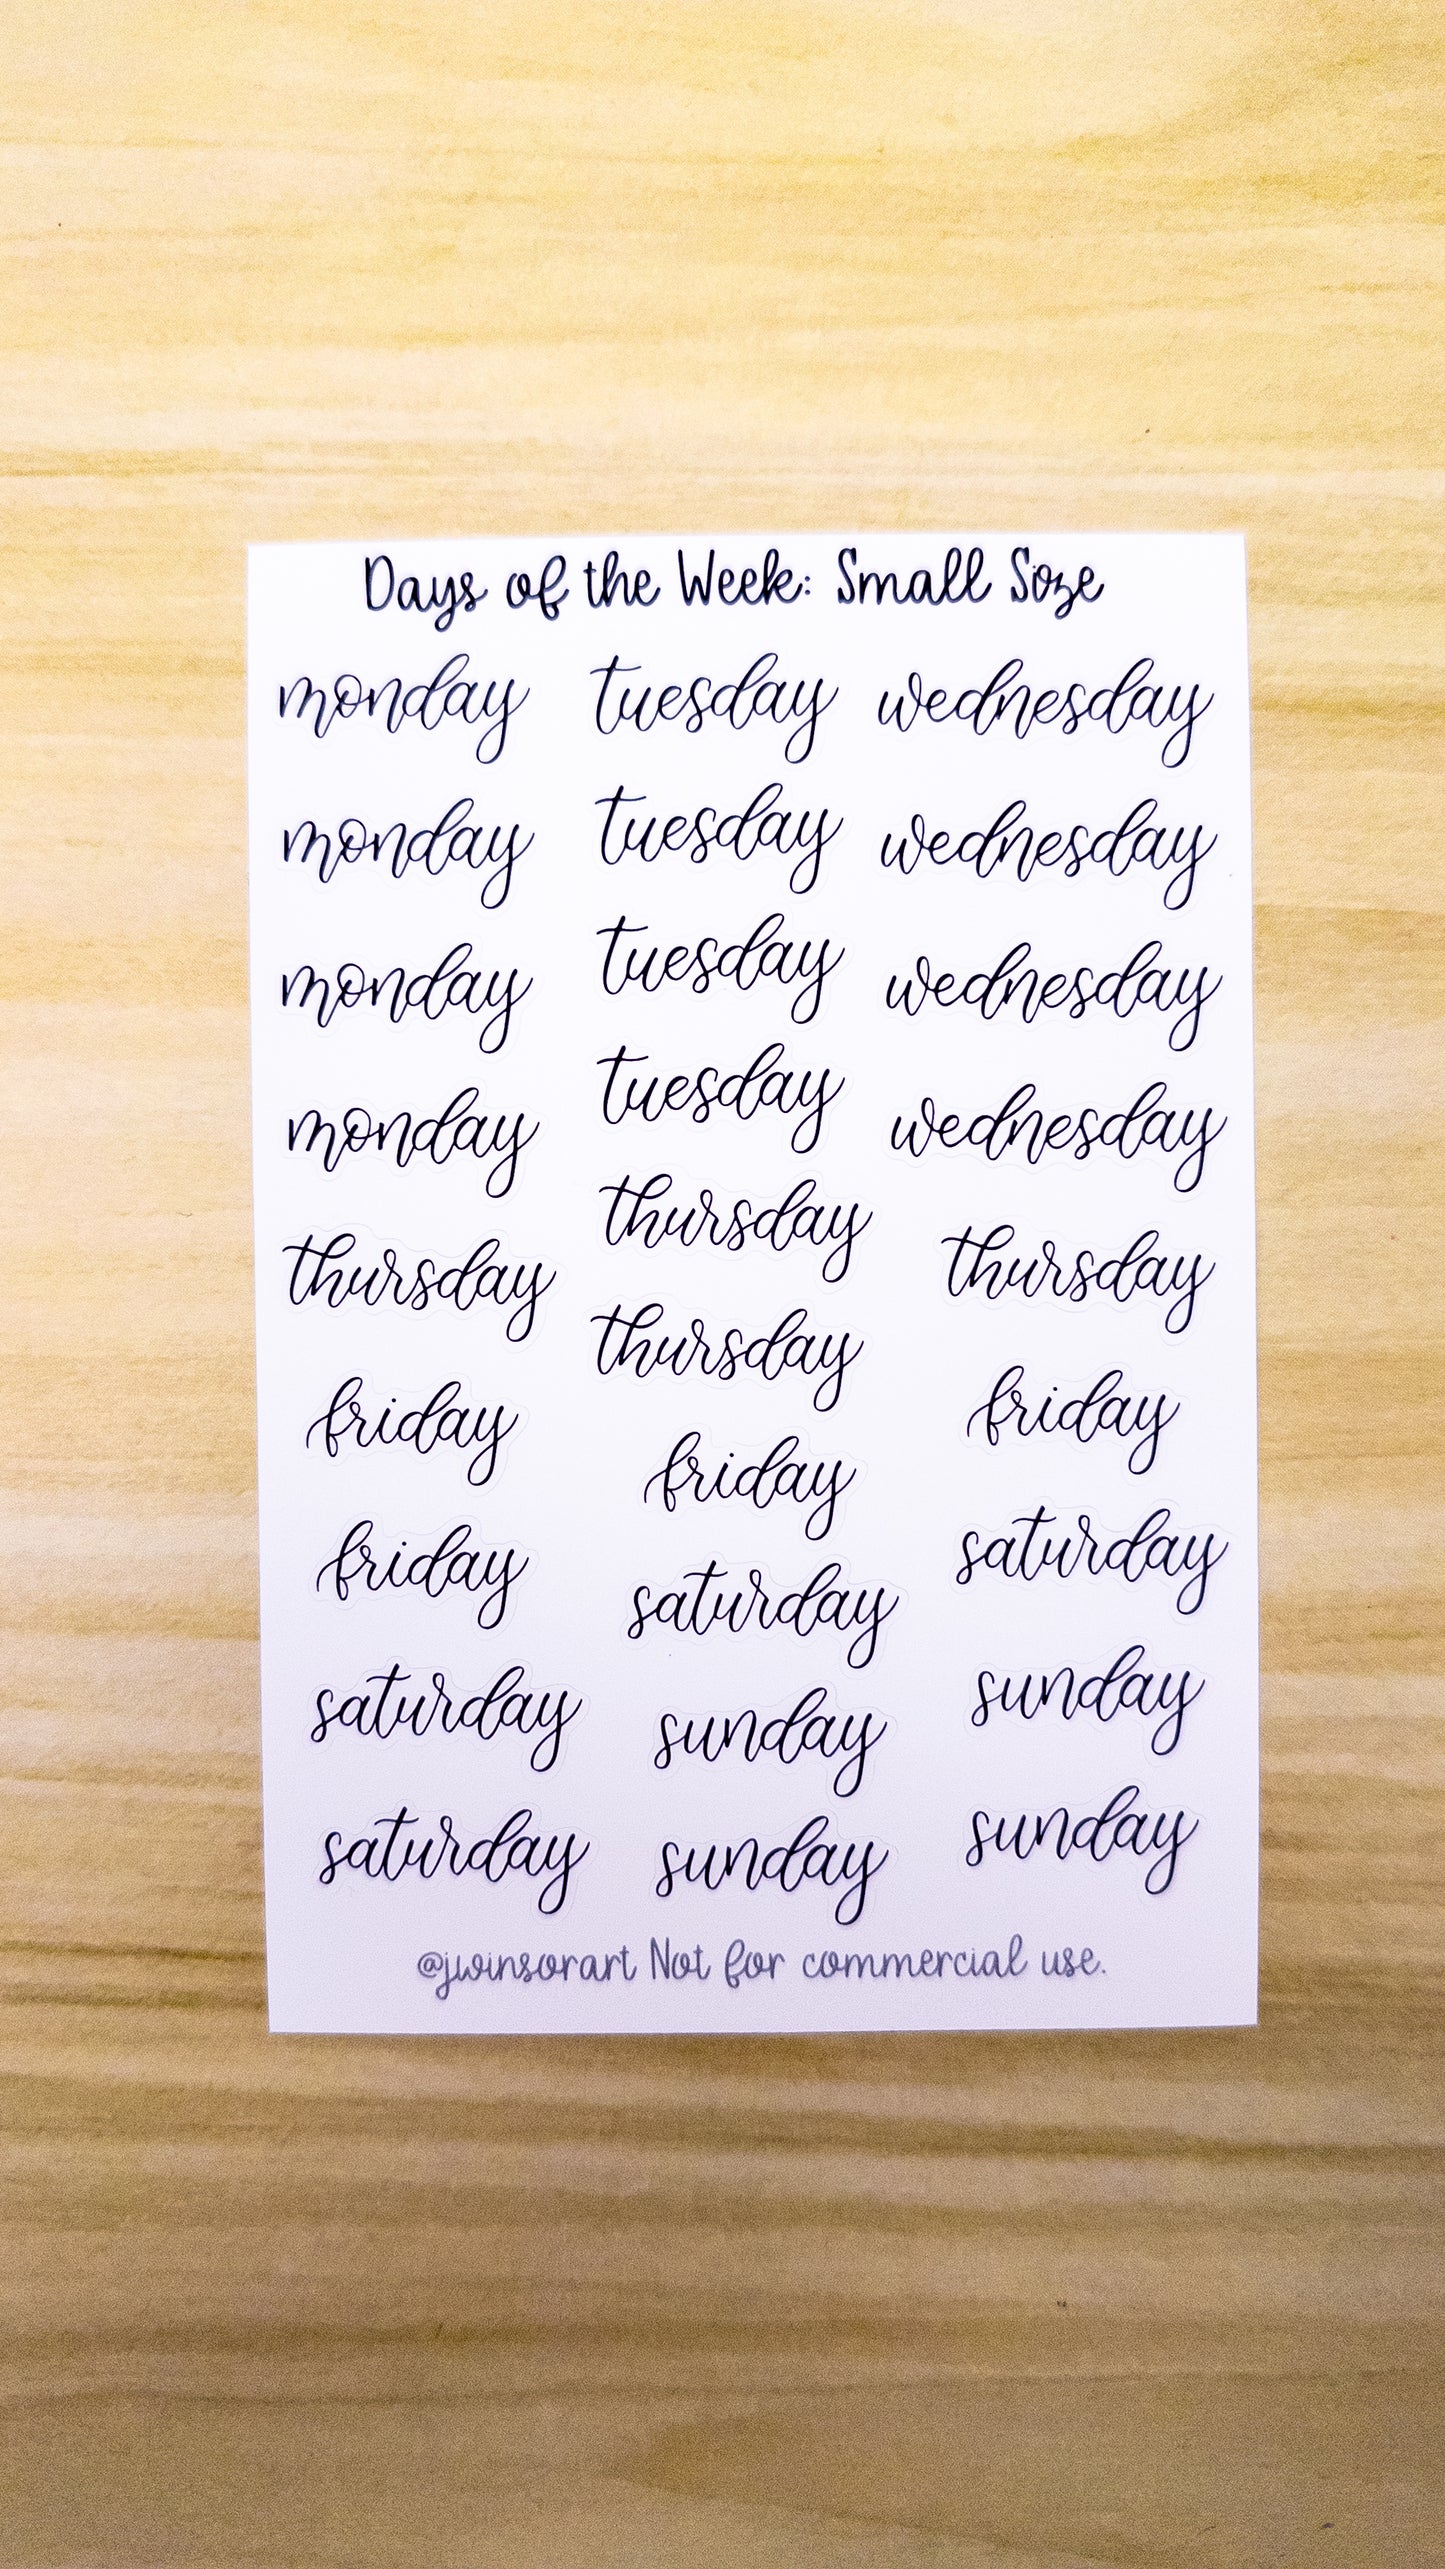 Days of the Week: Small Size
monday tuesday wednesday
monday tuesday wednesday
monday tuesday wednesday
monday tuesday wednesday
thursday thursday thursday
friday thursday friday
friday friday saturday
saturday saturday sunday
saturday sunday sunday
sunday
@jwinsorart Not for commercial use.